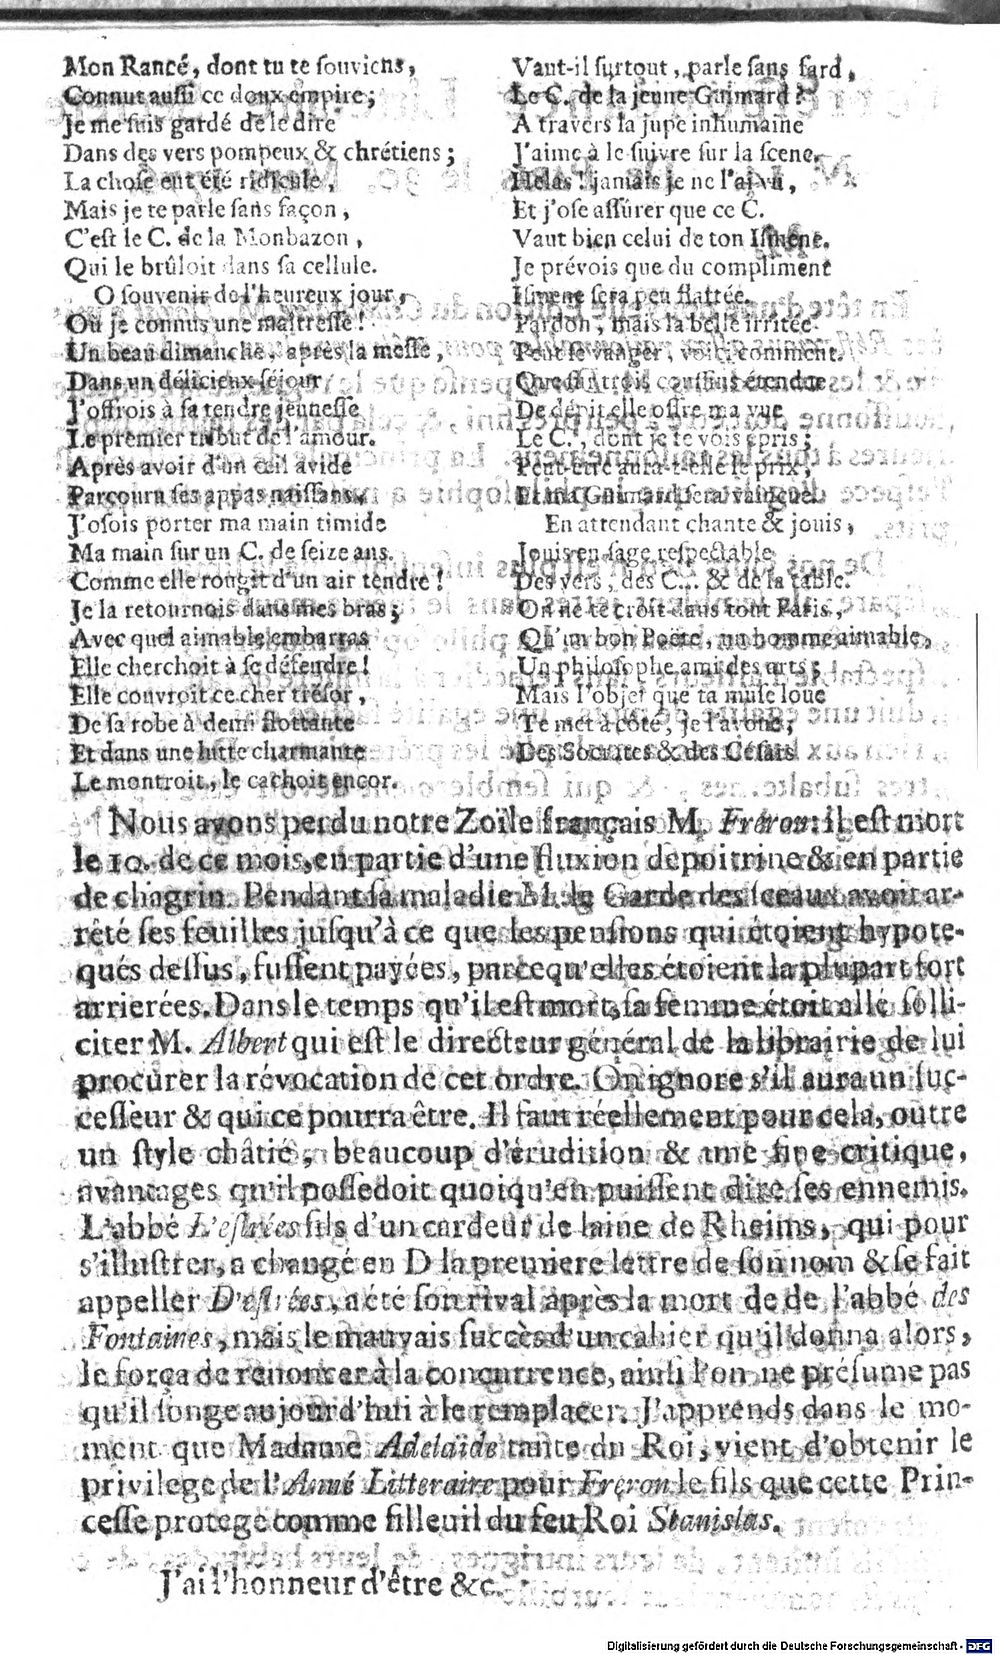 Mon Rancé, dont tu te souviens,
Connut aussi ce doux empire;
Je me suis gardé de le dire
Dans des vers pompeux & chrétiens;
La chose eut été ridicule,
Mais je te parle sans façon,
C'est le C. de la Monbazon,
Qui le brûloit dans sa cellule.
O souvenir de l'heureux jour,
Où je connus une maîtresse!
Un beau dimanche, après la messe,
Dans un délicieux séjour
J'offrois à sa tendre jeunesse
Le premier tribut de l'amour.
Après avoir d'un œil avide
Parcouru ses appas naissans,
J'osois porter ma main timide
Ma main sur un C. de seize ans.
Comme elle rougit d'un air tendre!
Je la retournois dans mes bras;
Avec quel aimable embarras
Elle cherchoit à se défendre!
Elle couvroit ce cher trésor,
De sa robe à demi flottante
Et dans une lutte charmante
Le montroit, le cachoit encor.
Vaut-il surtout, parle sans fard,
Le C. de la jeune Guimard?
A travers la jupe inhumaine
J'aime à le suivre sur la scene.
Helas! jamais je ne l'ai vu,
Et j'ose assûrer que ce C.
Vaut bien celui de ton Ismene.
Je prévois que du compliment
Ismene sera peu flattée.
Pardon, mais la belle irritée
Peut se vanger, voici comment.
Que sur trois coussins étendue
De dépit elle offre ma vue
Le C., dont je te vois épris;
Peut-être aura-t-elle le prix,
Et ma Guimard sera vaincue.
En attendant chante & jouis,
Jouis en sage respectable
Des vers, des C... & de la table.
On ne te croit dans tout Paris,
Qu'un bon Poëte, un homme aimable,
Un philosophe ami des arts;
Mais l'objet que ta muse loue
Te met à côté, je l'avoue,
Des Socrates & des Césars.
Nous avons perdu notre Zoïle français M. Fréron: il est mort
le 10. de ce mois, en partie d'une fluxion de poitrine & en partie
de chagrin. Pendant sa maladie M. le Garde des sceaux avoit ar-
rêté ses feuilles jusqu'à ce que les pensions qui étoient hypote-
qués dessus, fussent payées, parcequ'elles étoient la plupart fort
arrierées. Dans le temps qu'il est mort, sa femme étoit allé solli-
citer M. Albert qui est le directeur général de la librairie de lui
procurer la révocation de cet ordre. On ignore s'il aura un suc-
cesseur & qui ce pourra être. Il faut réellement pour cela, outre
un style châtié, beaucoup d'érudition & une fine critique,
avantages qu'il possedoit quoiqu'en puissent dire ses ennemis.
L'abbé L'estrées fils d'un cardeur de laine de Rheims, qui pour
s'illustrer, a changé en D la premiere lettre de son nom & se fait
appeller D'estrées, a été son rival après la mort de de l'abbé des
Fontaines, mais le mauvais succès d'un cahier qu'il donna alors,
le força de renoncer à la concurrence, ainsi l'on ne présume pas
qu'il songe aujourd'hui à le remplacer. J'apprends dans le mo-
ment que Madame Adelaïde tante du Roi, vient d'obtenir le
privilege de l'Anné Litteraire pour Fréron le fils que cette Prin-
cesse protege comme filleuil du feu Roi Stanislas.
J'ai l'honneur d'être &c.
Digitalisierung gefördert durch die Deutsche Forschungsgemeinschaft - DFG